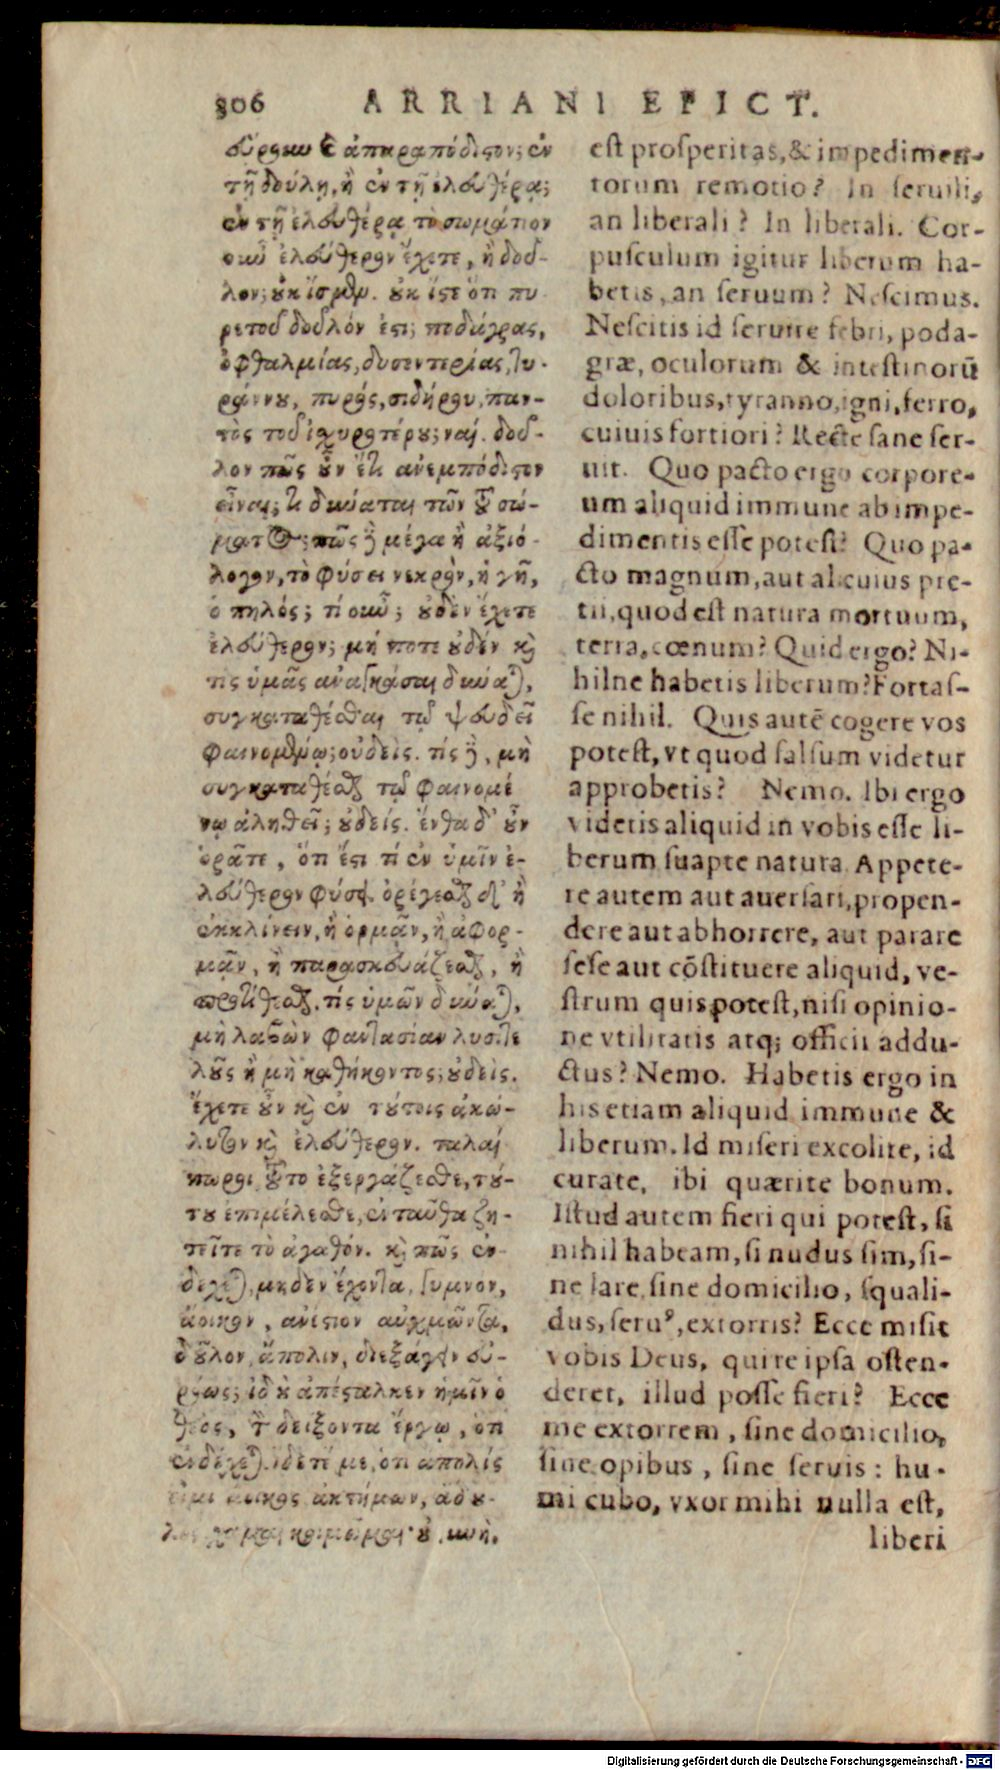 806 ARRIANI EPICT.
εύρουν & ἀπαραπόδιςον; ἐν
τῇ δούλῃ, ἢ ἐν τῇ ἐλευθέρᾳ;
ἐν τῇ ἐλευθέρᾳ. τὸ σωμάτιον
οιῶ ἐλεύθερον ἔχετε, ἢ δοῦ-
λον; ȣκ ἴσμϟμ. ȣκ ἴςε ὅτι πυ
ρετοῦ δοῦλόν ἐςι; ποδάγρας,
ὀφθαλμίας, δυσεντερίας, τυ-
ράννȣ, πυρός, σιδήρου, παν-
τὸς τοῦ ἰχυροτέρȣ; ναί. δοῦ-
λον πῶς ȣ̓ν ἔτι ἀνεμπόδιςον
εἶναι; τι δύναται τῶν τοῦ σώ-
ματος; πῶς ϳ μέγα ἢ ἀξιό-
λογον, τὸ φύσει νεκρὸν, ἡ γῆ,
ὁ πηλός; τί οιῶ; ȣδὲν ἔχετε
ἐλεύθερον; μή ποτε ȣδέν. κ̀
τις ὑμᾶς ἀναγκάσαι δύναται,
συγκαταθέσθαι τῷ ψευδεῖ
φαινομένῳ; οὐδείς. τίς ϳ, μὴ
συγκαταθέσθαι τῷ φαινομέ
νῳ ἀληθεῖ; ȣδείς. ἐνθάδ' ȣ̓ν
ὁρᾶτε, ὅτι ἔςι τί ἐν ὑμῖν ἐ-
λεύθερον φύσει. ὀρέγεσθαι δ' ἢ
ἐκκλίνειν, ἢ ὁρμᾷν, ἢ ἀφορ-
μᾷν, ἢ παρασκευάζεσθαι, ἢ
προτίθεσθαι. τίς ὑμῶν δύναται,
μὴ λαβὼν φαντασίαν λυσιτε
λοῦς ἢ μὴ καθήκοντος; ȣδείς.
ἔχετε ȣ̓ν κ̀ ἐν τȣ́τοις ἀκώ-
λυτον κ̀ ἐλεύθερον. ταλαί
πωροι τοῦτο ἐξεργάζεσθε, τȣ́-
τȣ ἐπιμέλεσθε, ἐνταῦθα ζη-
τεῖτε τὸ ἀγαθόν. κ̀ πῶς ἐν-
δέχεται, μηδὲν ἔχοντα, γυμνον,
ἄοικον, ἀνέςιον αὐχμῶντα,
δȣ͂λον, ἄπολιν, διεξάγειν εὐ-
ρόως; ἰδȣ̀ ἀπέςαλκεν ἡμῖν ὁ
θεὸς, τὸν δείξοντα ἔργῳ, ὅτι
ἐνδέχεται. ἴδετέ με, ὅτι ἄπολίς
εἰμι ἄοικος ἀκτήμων, ἄδȣ-
λος χαμαὶ κοιμῶμαι· ȣ̓ γυνὴ,
est prosperitas, & impedimen-
torum remotio? In seruili,
an liberali? In liberali. Cor-
pusculum igitur liberum ha-
betis, an seruum? Nescimus.
Nescitis id seruire febri, poda-
græ, oculorum & intestinorū
doloribus, tyranno, igni, ferro,
cuiuis fortiori? Recte sane ser-
uit. Quo pacto ergo corpore-
um aliquid immune ab impe-
dimentis esse potest? Quo pa-
cto magnum, aut alicuius pre-
tii, quod est natura mortuum,
terra, cœnum? Quid ergo? Ni-
hilne habetis liberum? Fortas-
se nihil. Quis autē cogere vos
potest, vt quod falsum videtur
approbetis? Nemo. Ibi ergo
videtis aliquid in vobis esse li-
berum suapte natura. Appete-
re autem aut auersari, propen-
dere aut abhorrere, aut parare
sese aut cōstituere aliquid, ve-
strum quis potest, nisi opinio-
ne vtilitatis atq; officii addu-
ctus? Nemo. Habetis ergo in
his etiam aliquid immune &
liberum. Id miseri excolite, id
curate, ibi quærite bonum.
Istud autem fieri qui potest, si
nihil habeam, si nudus sim, si-
ne lare, sine domicilio, squali-
dus, seruꝰ, extorris? Ecce misit
vobis Deus, qui re ipsa osten-
deret, illud posse fieri? Ecce
me extorrem, sine domicilio,
sine opibus, sine seruis: hu-
mi cubo, vxor mihi nulla est,
liberi
Digitalisierung gefördert durch die Deutsche Forschungsgemeinschaft - DFG